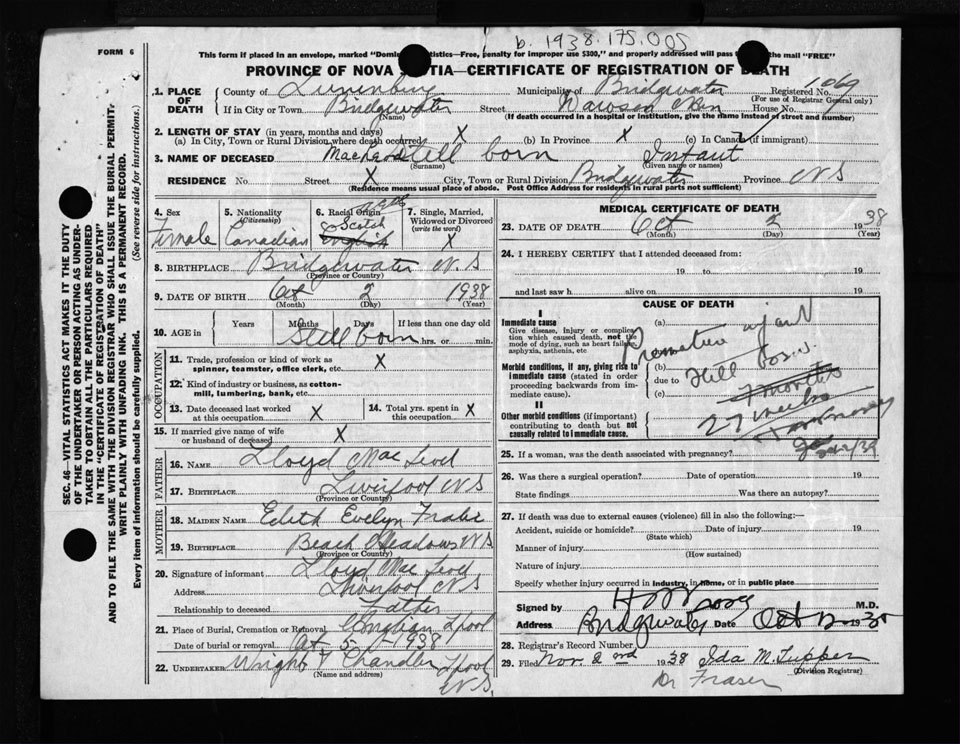 b. 1938.175.005
FORM 6
This form if placed in an envelope, marked "Domin tistics—Free, penalty for improper use $300," and properly addressed will pass the mail "FREE"
PROVINCE OF NOVA TIA—CERTIFICATE OF REGISTRATION OF DEATH
1. PLACE OF DEATH
County of Lunenburg Municipality of Bridgewater Registered No. 1069
(For use of Registrar General only)
If in City or Town Bridgewater Street House No.
(Name) (If death occurred in a hospital or institution, give the name instead of street and number)
2. LENGTH OF STAY (in years, months and days)
(a) In City, Town or Rural Division where death occurred X (b) In Province X (c) In Canada (if immigrant)
3. NAME OF DECEASED MacLeod Still born Infant
(Surname) (Given name or names)
RESIDENCE No. Street X City, Town or Rural Division Bridgewater Province NS
(Residence means usual place of abode. Post Office Address for residents in rural parts not sufficient)
SEC. 46 VITAL STATISTICS ACT MAKES IT THE DUTY
OF THE UNDERTAKER OR PERSON ACTING AS UNDER-
TAKER TO OBTAIN ALL THE PARTICULARS REQUIRED
IN THE "CERTIFICATE OF REGISTRATION OF DEATH"
AND TO FILE THE SAME WITH THE DIVISION REGISTRAR WHO SHALL ISSUE THE BURIAL PERMIT.
WRITE PLAINLY WITH UNFADING INK. THIS IS A PERMANENT RECORD.
Every item of information should be carefully supplied. (See reverse side for instructions.)
4. Sex
Female
5. Nationality
(Citizenship)
Canadian
6. Racial Origin
Scotch
English
7. Single, Married,
Widowed or Divorced
(write the word)
X
8. BIRTHPLACE Bridgewater N.S
(Province or Country)
9. DATE OF BIRTH Oct 2 1938
(Month) (Day) (Year)
10. AGE in Years Months Days If less than one day old
Still born hrs. or min.
OCCUPATION
11. Trade, profession or kind of work as
spinner, teamster, office clerk, etc. X
12. Kind of industry or business, as cotton-
mill, lumbering, bank, etc.
13. Date deceased last worked
at this occupation X
14. Total yrs. spent in
this occupation X
15. If married give name of wife
or husband of deceased X
FATHER
16. NAME Lloyd Mac Leod
17. BIRTHPLACE Liverpool NS
(Province or Country)
MOTHER
18. MAIDEN NAME Edith Evelyn
19. BIRTHPLACE Beach Meadows NS
(Province or Country)
20. Signature of informant Lloyd Mac Leod
Address Liverpool NS
Relationship to deceased Father
21. Place of Burial, Cremation or Removal Lpool
Date of burial or removal Oct 5 1938
22. UNDERTAKER Wright & Chandler Lpool
(Name and address) N.S.
MEDICAL CERTIFICATE OF DEATH
23. DATE OF DEATH Oct 2 1938
(Month) (Day) (Year)
24. I HEREBY CERTIFY that I attended deceased from:
19 to 19
and last saw h alive on 19
CAUSE OF DEATH
I
Immediate cause
Give disease, injury or complica-
tion which caused death, not the
mode of dying, such as heart failure,
asphyxia, asthenia, etc.
(a) Premature infant
Morbid conditions, if any, giving rise to
immediate cause (stated in order
proceeding backwards from im-
mediate cause).
(b) Still born.
due to
(c) 7 months
27 weeks
II
Other morbid conditions (if important)
contributing to death but not
causally related to immediate cause.
25. If a woman, was the death associated with pregnancy?
26. Was there a surgical operation? Date of operation 19
State findings Was there an autopsy?
27. If death was due to external causes (violence) fill in also the following:—
Accident, suicide or homicide? Date of injury 19
(State which)
Manner of injury
(How sustained)
Nature of injury
Specify whether injury occurred in industry, in home, or in public place
Signed by M.D.
Address Bridgewater Date Oct 19
28. Registrar's Record Number
29. Filed Nov. 2nd 1938 Ida M. Tupper
(Division Registrar)
Dr Fraser